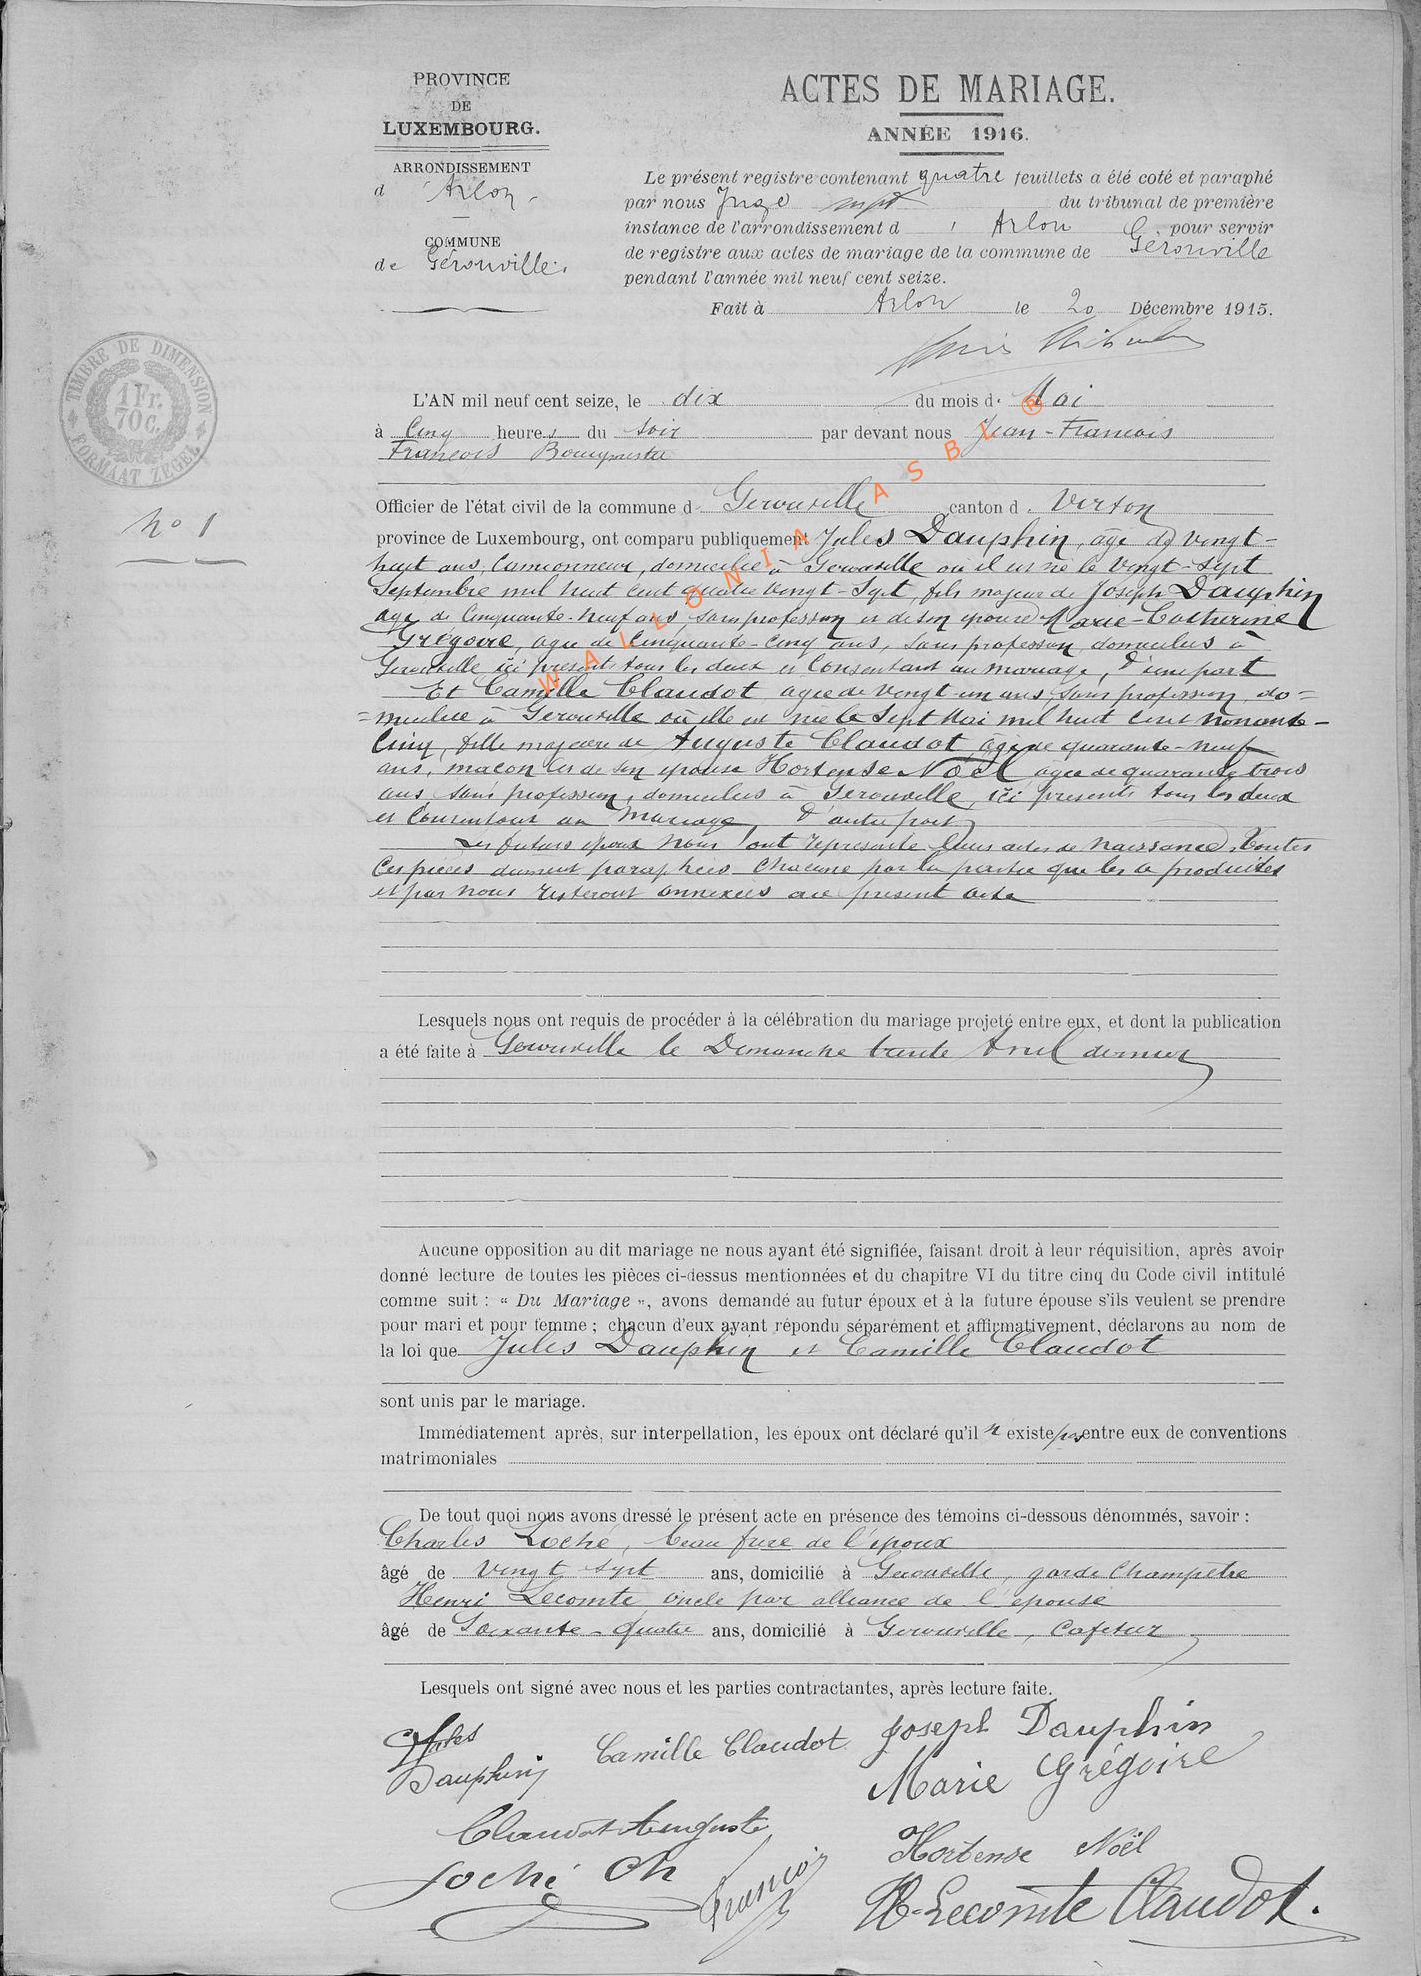 PROVINCE
DE
LUXEMBOURG.
ARRONDISSEMENT
d' Arlon
COMMUNE
de Gérouville.
ACTES DE MARIAGE.
ANNÉE 1916.
Le présent registre contenant quatre feuillets a été coté et paraphé
par nous Juge du tribunal de première
instance de l'arrondissement d' Arlon pour servir
de registre aux actes de mariage de la commune de Gérouville
pendant l'année mil neuf cent seize.
Fait à Arlon le 20 Décembre 1915.
TIMBRE DE DIMENSION
1 Fr.
70 C.
FORMAAT ZEGEL
No 1
L'AN mil neuf cent seize, le dix du mois de Mai
à Cinq heures du soir par devant nous Jean-Francois
Francois Bourgmestre
Officier de l'état civil de la commune d Gerouville canton d. Virton
province de Luxembourg, ont comparu publiquement Jules Dauphin, âgé de vingt-
huit ans, Camionneur, domicilié à Gerouville où il est né le vingt-sept
Septembre mil huit cent quatre vingt-sept, fils majeur de Joseph Dauphin
agé de Cinquante-neuf ans, sans profession et de son épouse Marie-Catherine
Grégoire, agée de Cinquante-cinq ans, sans profession, domiciliés à
Gerouville ici présent tous les deux et Consentant au mariage, d'une part
Et Camille Claudot agée de vingt un ans, sans profession, do=
=miciliée à Gerouville où elle est née le sept Mai mil huit cent nonante-
Cinq, fille majeure de Auguste Claudot, âgé de quarante-neuf
ans, maçon et de son épouse Hortense Noël, agée de quarante trois
ans sans profession, domiciliés à Gerouville, ici présents tous les deux
et Consentant au Mariage, d'autre part
Les futurs époux nous ont représenté leurs actes de naissance. Toutes
Ces pièces dument paraphées chacune par la partie qui les a produites
et par nous resteront annexées au présent acte
Lesquels nous ont requis de procéder à la célébration du mariage projeté entre eux, et dont la publication
a été faite à Gerouville le Dimanche trente Avril dernier
Aucune opposition au dit mariage ne nous ayant été signifiée, faisant droit à leur réquisition, après avoir
donné lecture de toutes les pièces ci-dessus mentionnées et du chapitre VI du titre cinq du Code civil intitulé
comme suit : « Du Mariage », avons demandé au futur époux et à la future épouse s'ils veulent se prendre
pour mari et pour femme ; chacun d'eux ayant répondu séparément et affirmativement, déclarons au nom de
la loi que Jules Dauphin et Camille Claudot
sont unis par le mariage.
Immédiatement après, sur interpellation, les époux ont déclaré qu'il n existe pas entre eux de conventions
matrimoniales
De tout quoi nous avons dressé le présent acte en présence des témoins ci-dessous dénommés, savoir :
Charles Loché, beau frère de l'époux
âgé de vingt sept ans, domicilié à Gerouville, garde Champêtre
Henri Lecomte oncle par alliance de l'épouse
âgé de Soixante-quatre ans, domicilié à Gerouville, Cafetier
Lesquels ont signé avec nous et les parties contractantes, après lecture faite.
Jules
Dauphin
Camille Claudot
Joseph Dauphin
Marie Grégoire
Claudot Auguste
Hortense Noël
Loché Ch
François
H-Lecomte Claudot.
WALLONIA ASBL ®